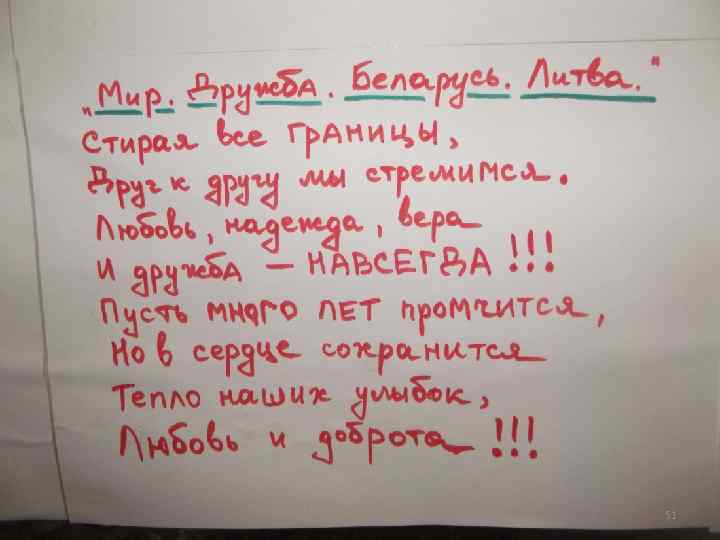 „Мир. Дружба. Беларусь. Литва."
Стирая все границы,
Друг к другу мы стремимся.
Любовь, надежда, вера
И дружба — НАВСЕГДА !!!
Пусть много лет промчится,
Но в сердце сохранится
Тепло наших улыбок,
Любовь и доброта !!!
51